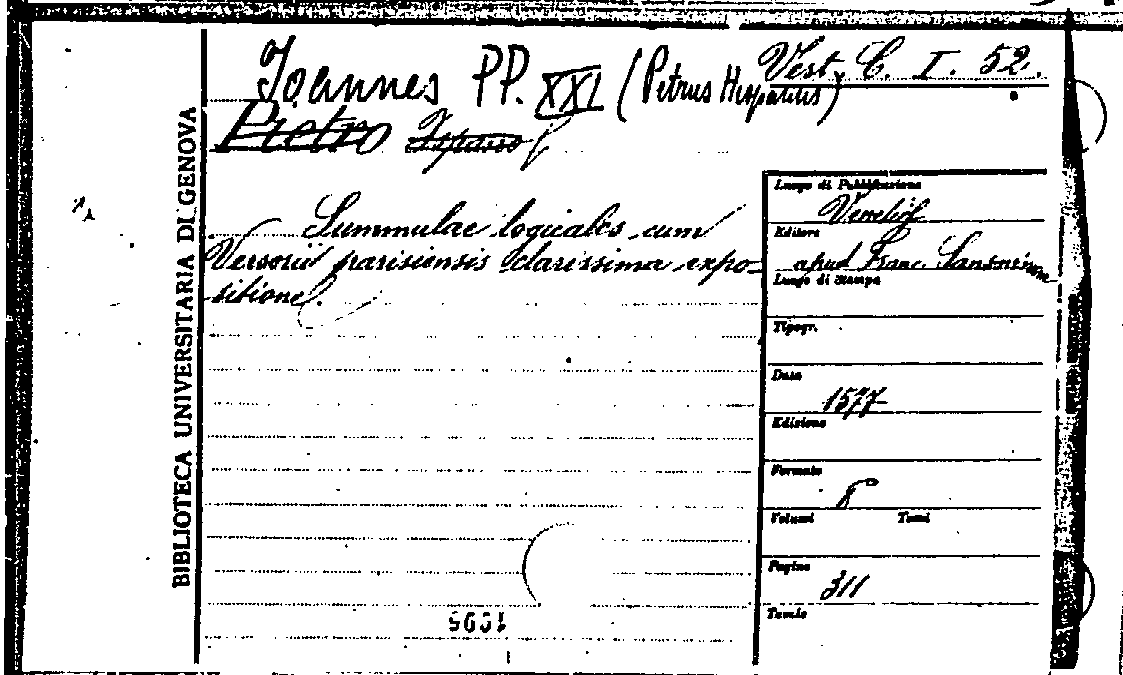 Joannes PP. XXI (Petrus Hispanus)
Vest. C. I. 52.
Pietro Ispano
Summulae logicales cum
Versorii parisiensis clarissima expo-
sitione.
BIBLIOTECA UNIVERSITARIA DI GENOVA
Luogo di Pubblicazione
Venetiis
Editore
apud Franc. Sansovinum
Luogo di Stampa
Tipogr.
Data
1577
Edizione
Formato
8°
Volumi Tomi
Pagine
311
Tavole